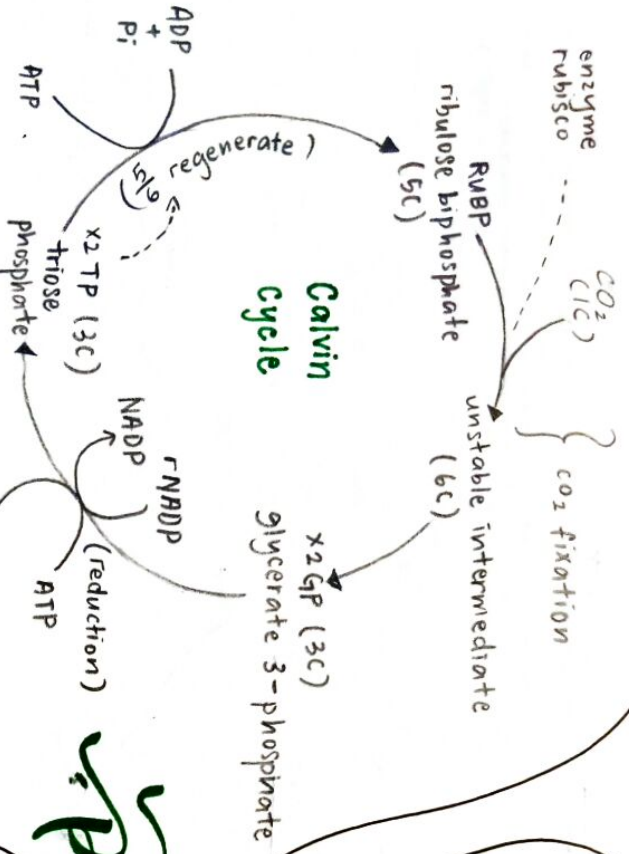 enzyme
rubisco
CO2
(1C)
CO2 fixation
RuBP
ribulose biphosphate
(5C)
unstable intermediate
(6C)
Calvin
Cycle
x2 GP (3C)
glycerate 3-phosphate
rNADP
NADP
(reduction)
ATP
x2 TP (3C)
triose
phosphate
(5/6 regenerate)
ADP
+
Pi
ATP